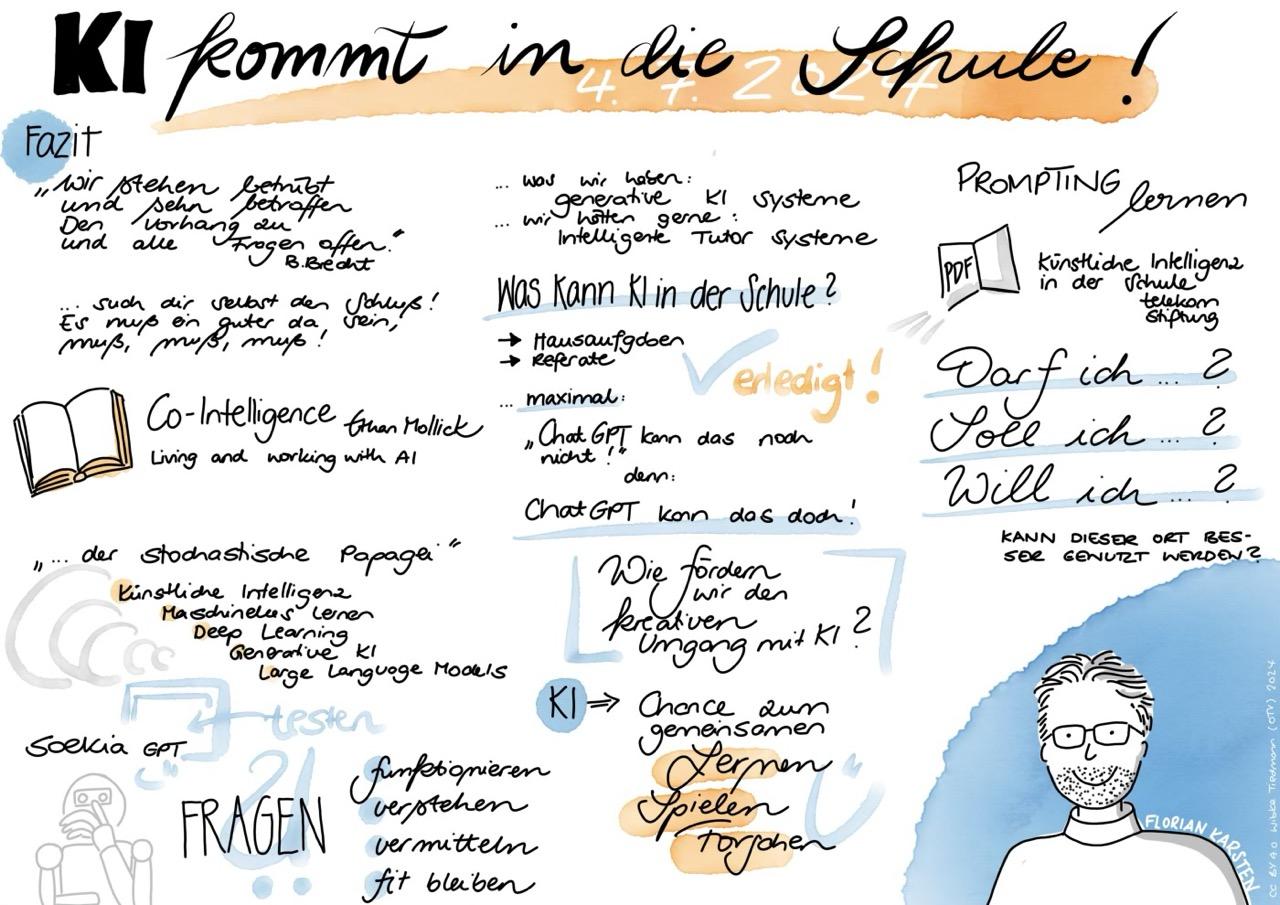 KI kommt in die Schule!
4. 7. 2024
Fazit
„Wir stehen betrübt
und sehn betroffen
Den Vorhang zu
und alle Fragen offen."
B. Brecht
... such dir selbst den Schluß!
Es muß ein guter da sein,
muß, muß, muß!
Co-Intelligence Ethan Mollick
Living and working with AI
„... der stochastische Papagei"
Künstliche Intelligenz
Maschinelles Lernen
Deep Learning
Generative KI
Large Language Models
testen
Soekia GPT
FRAGEN
funktionieren
verstehen
vermitteln
fit bleiben
... was wir haben:
generative KI Systeme
... wir hätten gerne:
Intelligente Tutor Systeme
Was kann KI in der Schule?
→ Hausaufgaben
→ Referate
erledigt!
... maximal:
„Chat GPT kann das noch
nicht!"
denn:
Chat GPT kann das doch!
Wie fördern
wir den
kreativen
Umgang mit KI?
KI ⇒ Chance zum
gemeinsamen
Lernen
Spielen
Forschen
PROMPTING
lernen
PDF
Künstliche Intelligenz
in der Schule
telekom
Stiftung
Darf ich ... ?
Soll ich ... ?
Will ich ... ?
KANN DIESER ORT BES-
SER GENUTZT WERDEN?
FLORIAN KARSTEN
CC BY 4.0 Wibke Tiedmann (OTV) 2024